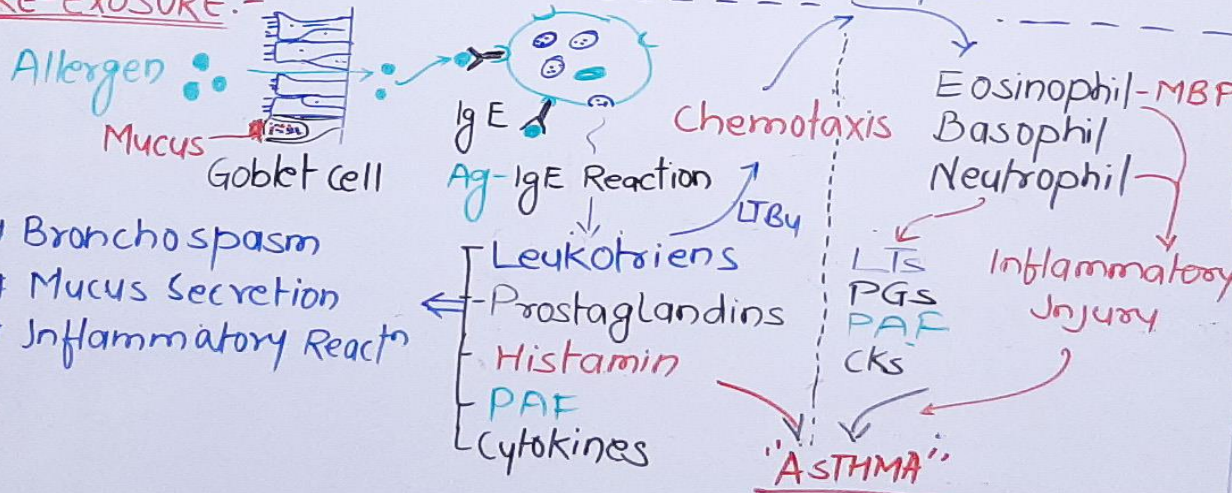 RE EXOSURE:-
Allergen
Mucus
Goblet cell
IgE
Ag-IgE Reaction
Chemotaxis
LTB4
Eosinophil-MBP
Basophil
Neutrophil
Bronchospasm
Mucus Secretion
Inflammatory Reactn
Leukotriens
Prostaglandins
Histamin
PAF
Cytokines
LTs
PGs
PAF
CKs
Inflammatory
Injury
"ASTHMA"